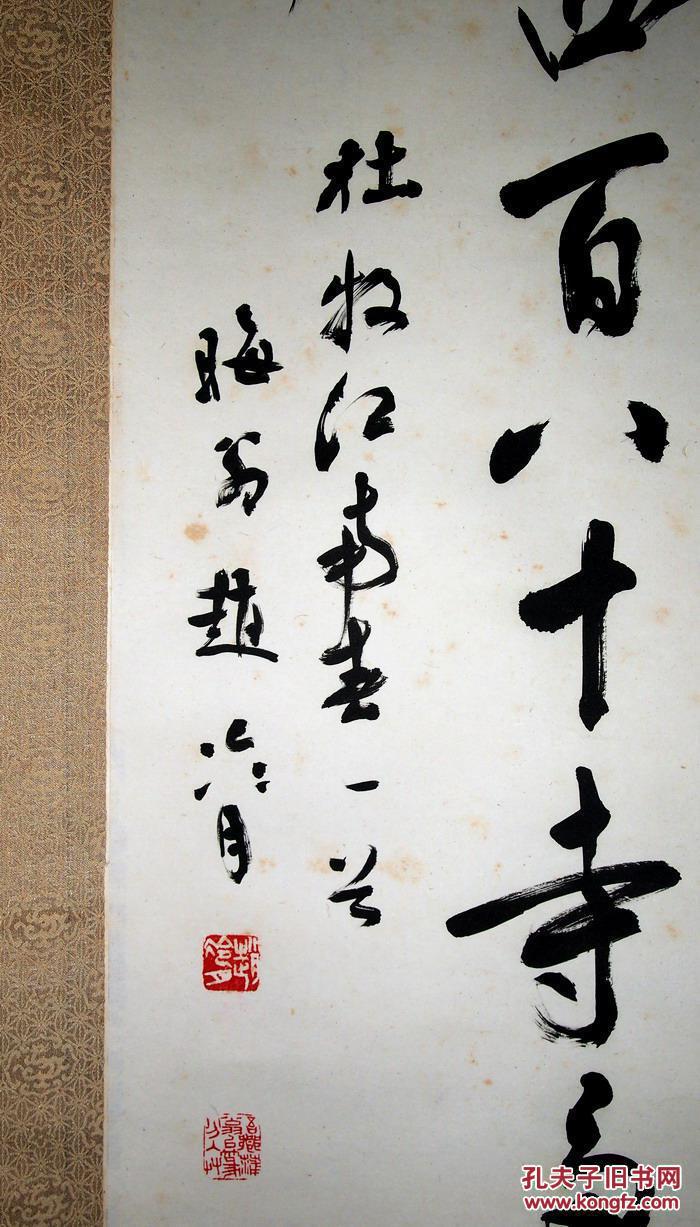 四百八十寺
杜牧江南春一首
晦翁趙冷月
趙冷月
孔夫子旧书网
www.kongfz.com